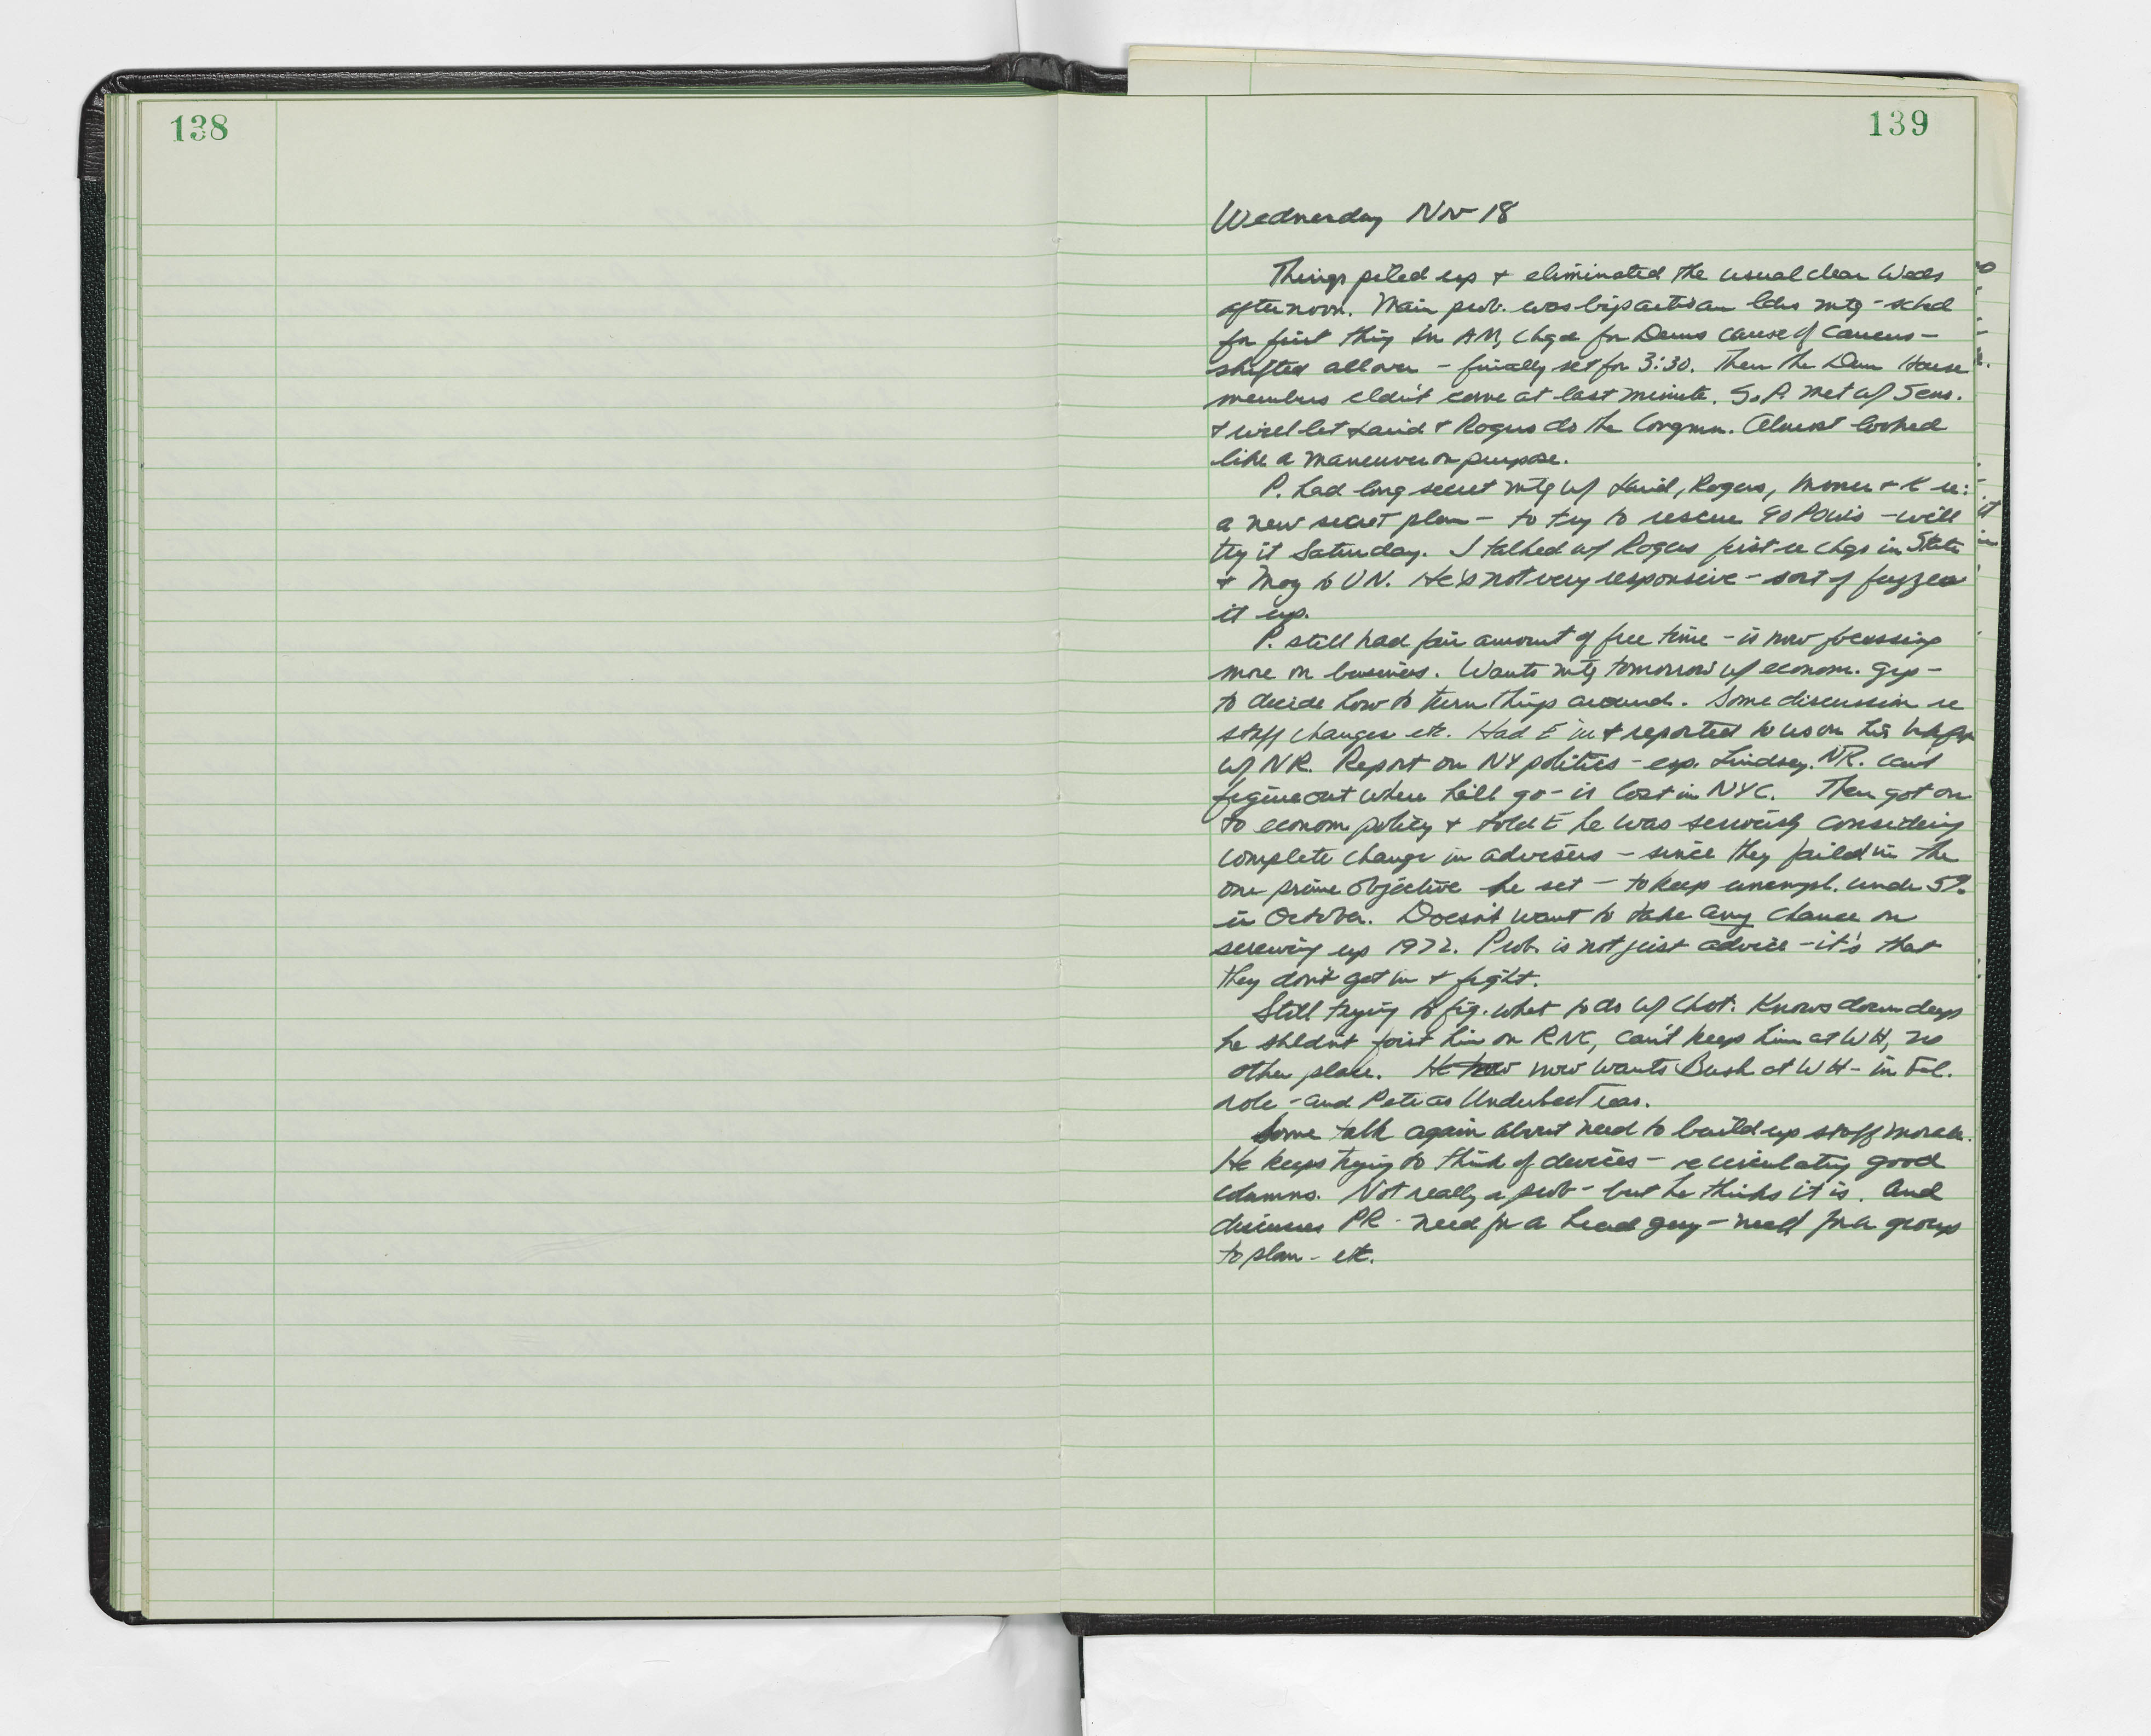 138
139
Wednesday Nov 18
Things piled up + eliminated the usual clear Weds
afternoon. Main prob. was bipartisan ldrs mtg - sched
for first thing in AM, chgd for Dems cause of caucus -
shifted all over - finally set for 3:30. Then the Dem House
members cldn't come at last minute. So P. met w/ Sens.
+ will let Laird + Rogers do the Congmn. Almost looked
like a maneuver on purpose.
P. had long secret mtg w/ Laird, Rogers, Moorer + K re:
a new secret plan - to try to rescue 90 POW's - will
try it Saturday. I talked w/ Rogers first re chgs in State
+ Moy to UN. He's not very responsive - sort of fuzzed
it up.
P. still had fair amount of free time - is now focussing
more on business. Wants mtg tomorrow w/ econom. grp -
to decide how to turn things around. Some discussion re
staff changes etc. Had E in + reported to us on his
w/ NR. Report on NY politics - esp. Lindsay. NR. can't
figure out where he'll go - is lost in NYC. Then got on
to econom policy + told E he was seriously considering
complete change in advisers - since they failed in the
one prime objective he set - to keep unempl. under 5%
in October. Doesn't want to take any chance on
screwing up 1972. Prob. is not just advice - it's that
they don't get in + fight.
Still trying to fig. what to do w/ Chot. Knows down deep
he shldn't foist him on RNC, can't keep him at WH, no
other place. now wants Bush at WH - in
role - and Pete as Undersect Treas.
Some talk again about need to build up staff morale.
He keeps trying to think of devices - recirculating good
columns. Not really a prob - but he thinks it is. And
discusses PR - need for a head guy - need for a group
to plan - etc.